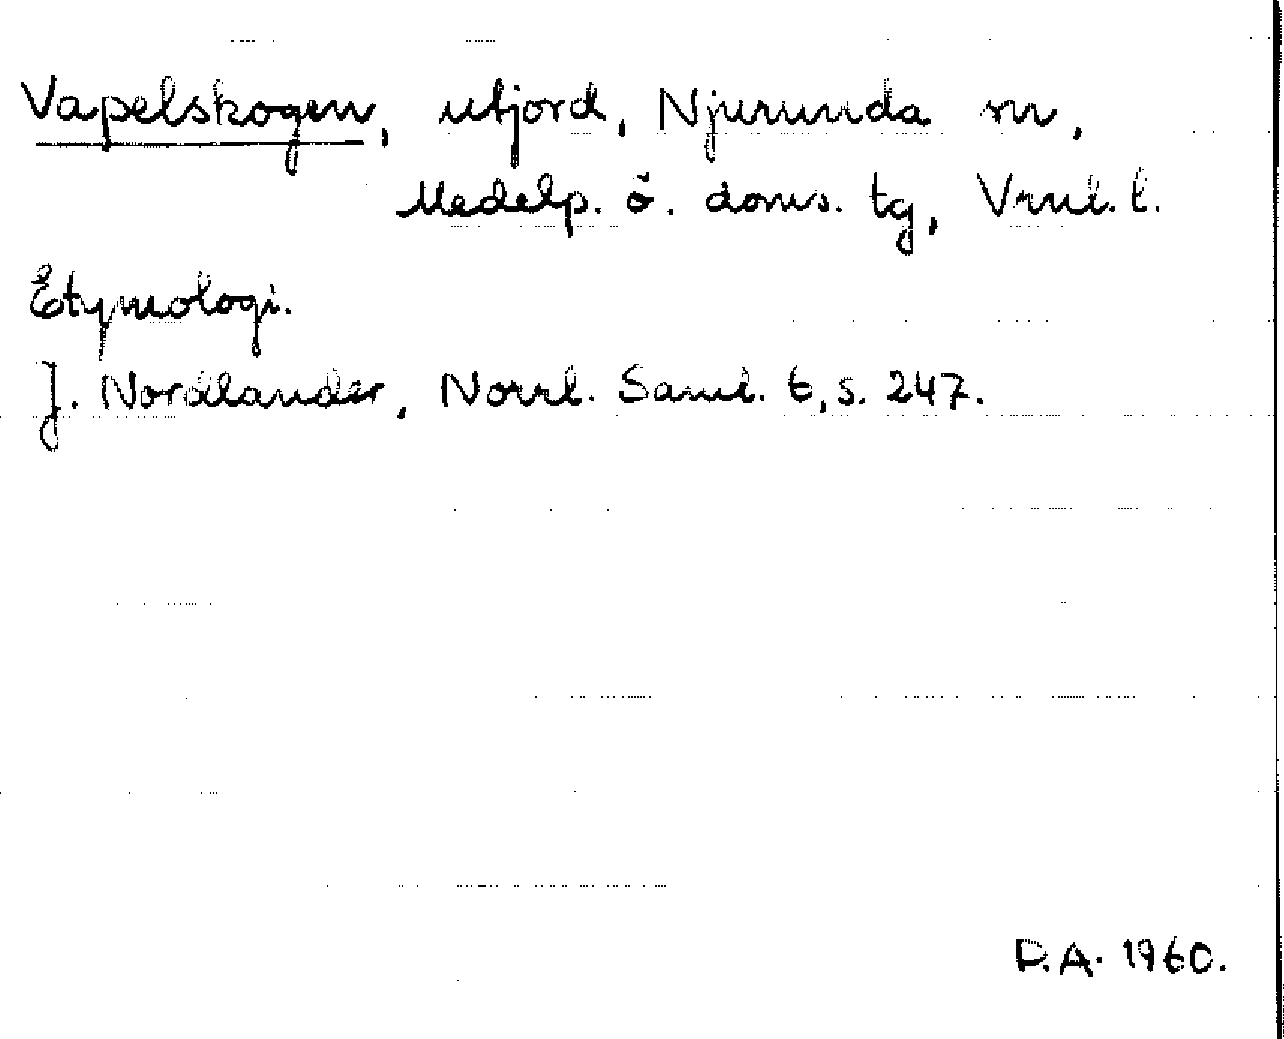 Vapelskogen, utjord, Njurunda sn,
Medelp. ö. doms. tg, Vrnl. l.
Etymologi.
J. Nordlander, Norrl. Saml. 6, s. 247.
P.A. 1960.